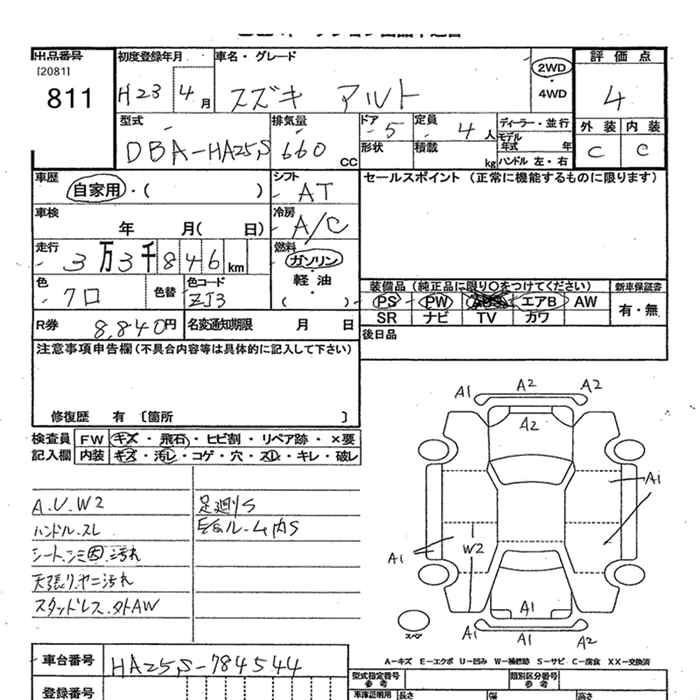 出品番号 初度登録年月 車名・グレード 評価点
[2081]
811
H23 4月 スズキ アルト
2WD
・4WD
4
型式 排気量 ドア 5 定員 4人 ディーラー・並行 外装 内装
DBA-HA25S 660 CC
形状 積載 kg モデル年式 年
ハンドル 左・右
C C
車歴 自家用・( ) シフト AT セールスポイント (正常に機能するものに限ります)
車検 年 月( 日) 冷房 A/C
走行 3万3千846km 燃料 ガソリン
軽油
( )
色 クロ 色替 色コード ZJ3
装備品 (純正品に限り○をつけてください) 新車保証書
PS PW エアB AW 有・無
SR ナビ TV カワ
R券 8,840円 名変通知期限 月 日 後日品
注意事項申告欄 (不具合内容等は具体的に記入して下さい)
修復歴 有 [箇所 ]
検査員 FW キズ・飛石・ヒビ割・リペア跡・×要
記入欄 内装 キズ・汚レ・コゲ・穴・スレ・キレ・破レ
A.U.W2 足廻りS
ハンドル.スレ ルーム内S
シート.シミ 汚れ
天張り.ヤニ汚れ
スタッドレス.タトAW
A1 A2 A2
A2
A1
A1 W2
A1
A1 A1 A2
スペア
A-キズ E-エクボ U-凹み W-補修跡 S-サビ C-腐食 XX-交換済
車台番号 HA25S-784544 型式指定番号 参考 類別区分番号 参考
登録番号 車庫証明用 長さ 幅 高さ